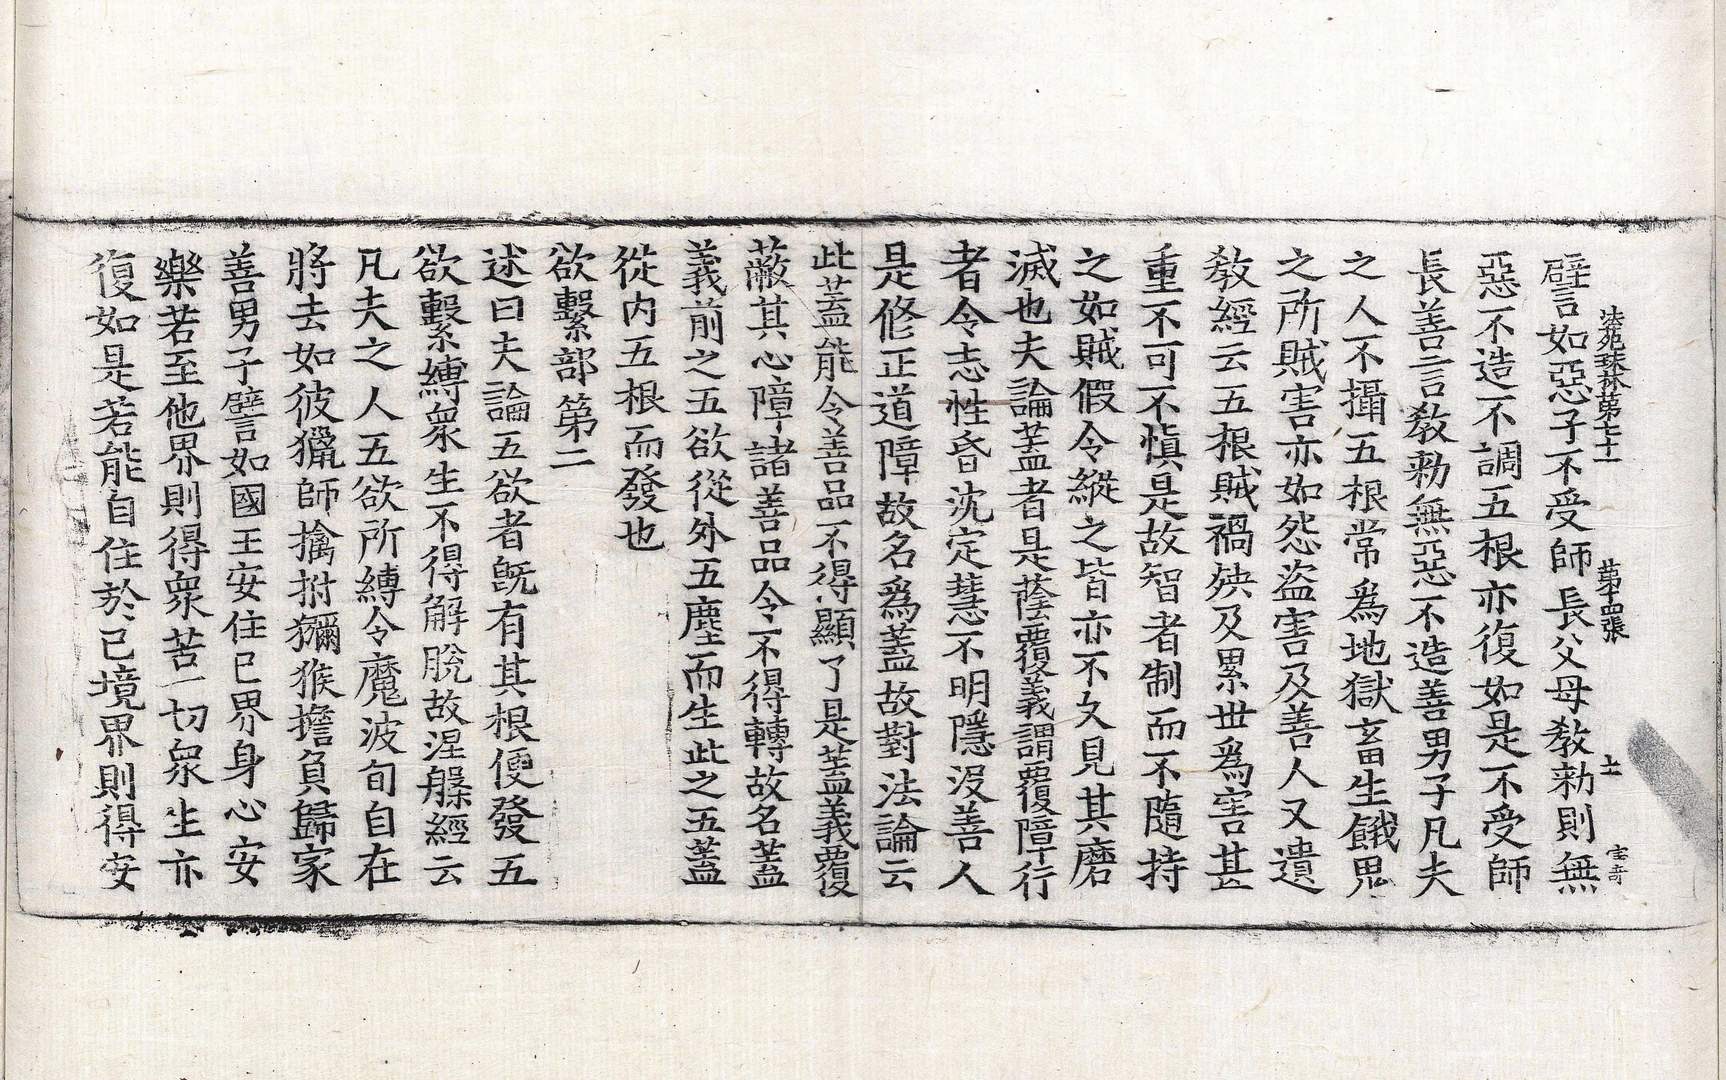 法苑珠林第七十一 第十四張 土 宅奇
譬如惡子不受師長父母教勑則無
惡不造不調五根亦復如是不受師
長善言教勑無惡不造善男子凡夫
之人不攝五根常爲地獄畜生餓鬼
之所賊害亦如怨盗害及善人又遺
教經云五根賊禍殃及累世爲害甚
重不可不慎是故智者制而不隨持
之如賊假令縱之皆亦不久見其磨
滅也夫論蓋者是蔭覆義謂覆障行
者令志性昏沈定慧不明隱沒善人
是修正道障故名爲蓋故對法論云
此蓋能令善品不得顯了是蓋義覆
蔽其心障諸善品令不得轉故名蓋
義前之五欲從外五塵而生此之五蓋
從内五根而發也
欲繫部第二
述曰夫論五欲者旣有其根便發五
欲繫縛衆生不得解脫故涅槃經云
凡夫之人五欲所縛令魔波旬自在
將去如彼獵師擒捬獼猴擔負歸家
善男子譬如國王安住己界身心安
樂若至他界則得衆苦一切衆生亦
復如是若能自住於己境界則得安